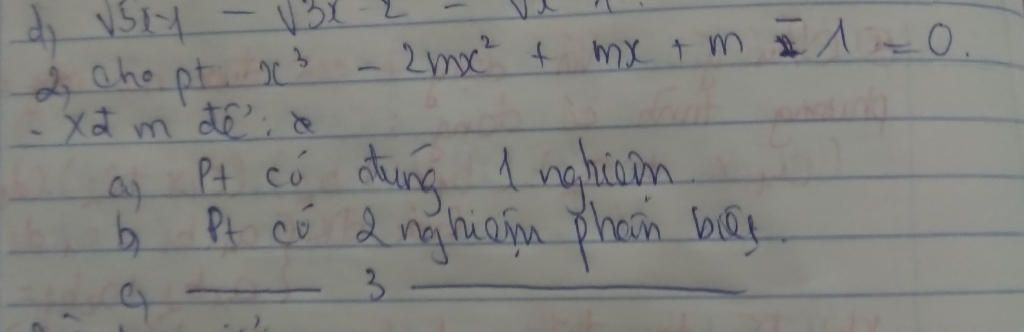 d, √5x-1 - √3x-2 - √x-1
2, cho pt x³ - 2mx² + mx + m - 1 = 0.
- xđ m để :
a, Pt có đúng 1 nghiệm.
b, Pt có 2 nghiệm phân biệt.
c, —— 3 ————